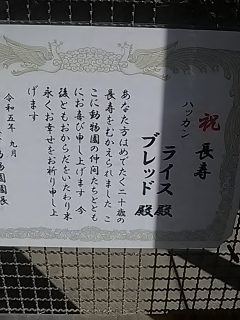 祝 長寿
ハッカン
ライス殿
ブレッド殿
あなた方はめでたく二十歳の
長寿をむかえられました こ
こに動物園の仲間たちととも
にお喜び申し上げます 今
後ともおからだをいたわり末
永くお幸せをお祈り申し上
げます
令和五年 九月
動物園園長